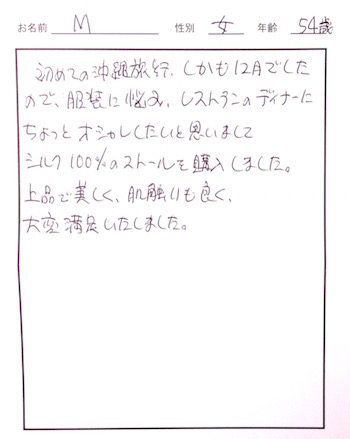 お名前 M 性別 女 年齢 54歳
初めての沖縄旅行、しかも12月でした
ので、服装に悩み、レストランのディナーに
ちょっとオシャレしたいと思いまして
シルク100%のストールを購入しました。
上品で美しく、肌触りも良く、
大変満足いたしました。